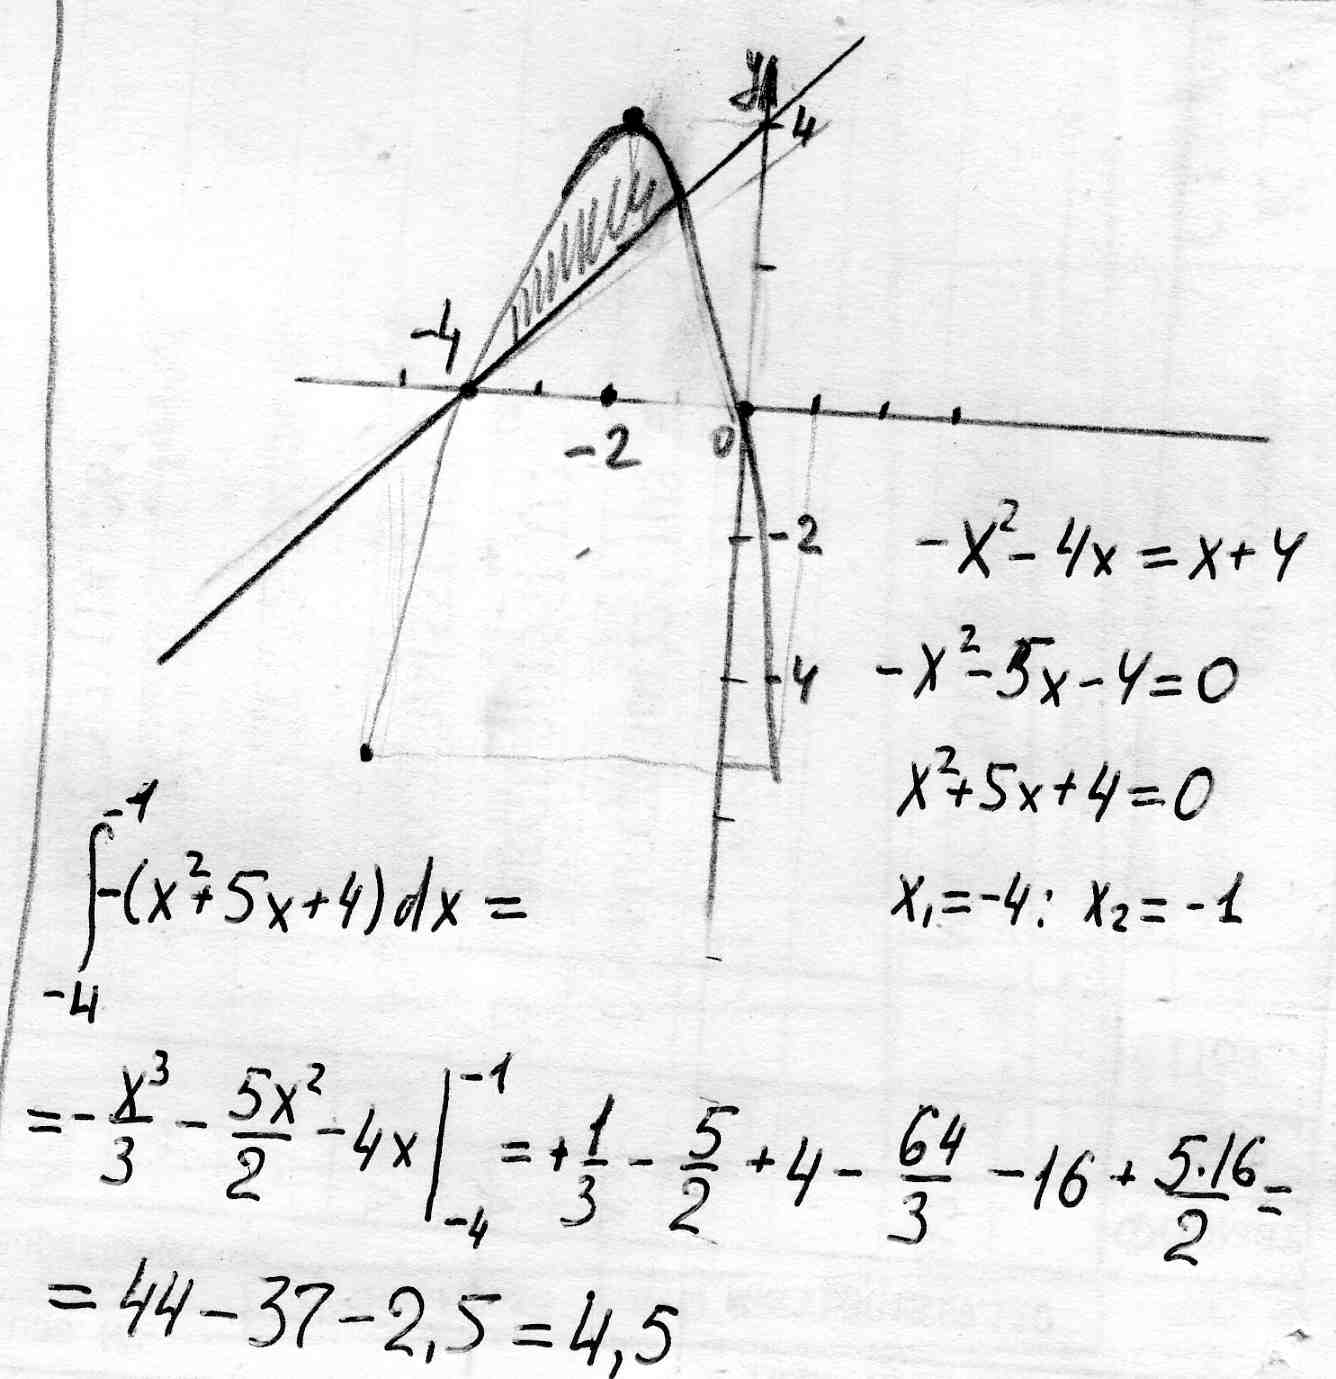 y
4
-4
-2
0
-2
-4
-x² - 4x = x + 4
-x² - 5x - 4 = 0
x² + 5x + 4 = 0
x₁ = -4; x₂ = -1
∫₋₄⁻¹ -(x² + 5x + 4) dx =
= - x³/3 - 5x²/2 - 4x |₋₄⁻¹ = + 1/3 - 5/2 + 4 - 64/3 - 16 + 5·16/2 =
= 44 - 37 - 2,5 = 4,5